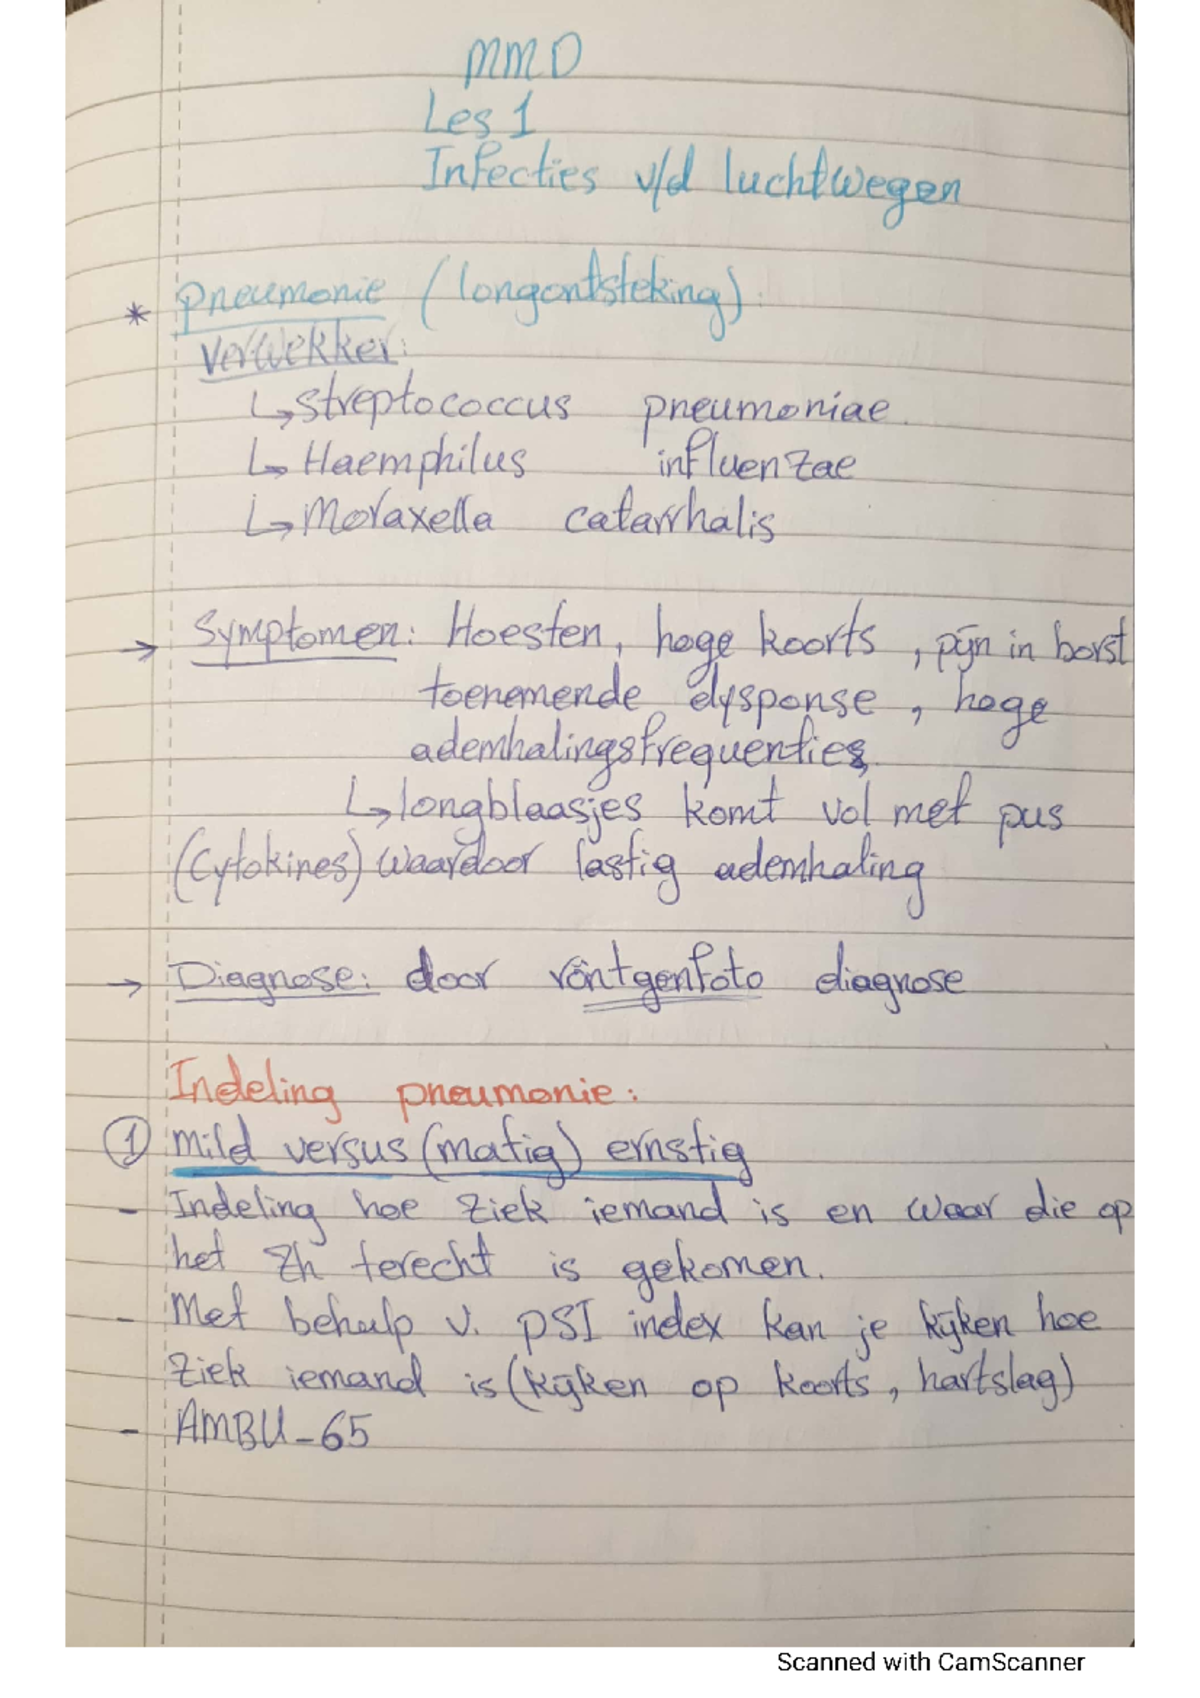 MMD
Les 1
Infecties v/d luchtwegen
* pneumonie (longontsteking).
Verwekker:
↳ streptococcus pneumoniae.
↳ Haemphilus influenzae
↳ Moraxella catarrhalis
→ Symptomen: Hoesten, hoge koorts, pijn in borst
toenemende dysponse, hoge
ademhalingsfrequenties
↳ longblaasjes komt vol met pus
(Cytokines) waardoor lastig ademhaling
→ Diagnose: door röntgenfoto diagnose
Indeling pneumonie:
① Mild versus (matig) ernstig
- Indeling hoe ziek iemand is en waar die op
het Zh terecht is gekomen.
- Met behulp v. PSI index kan je kijken hoe
ziek iemand is (kijken op koorts, hartslag)
- AMBU-65
Scanned with CamScanner